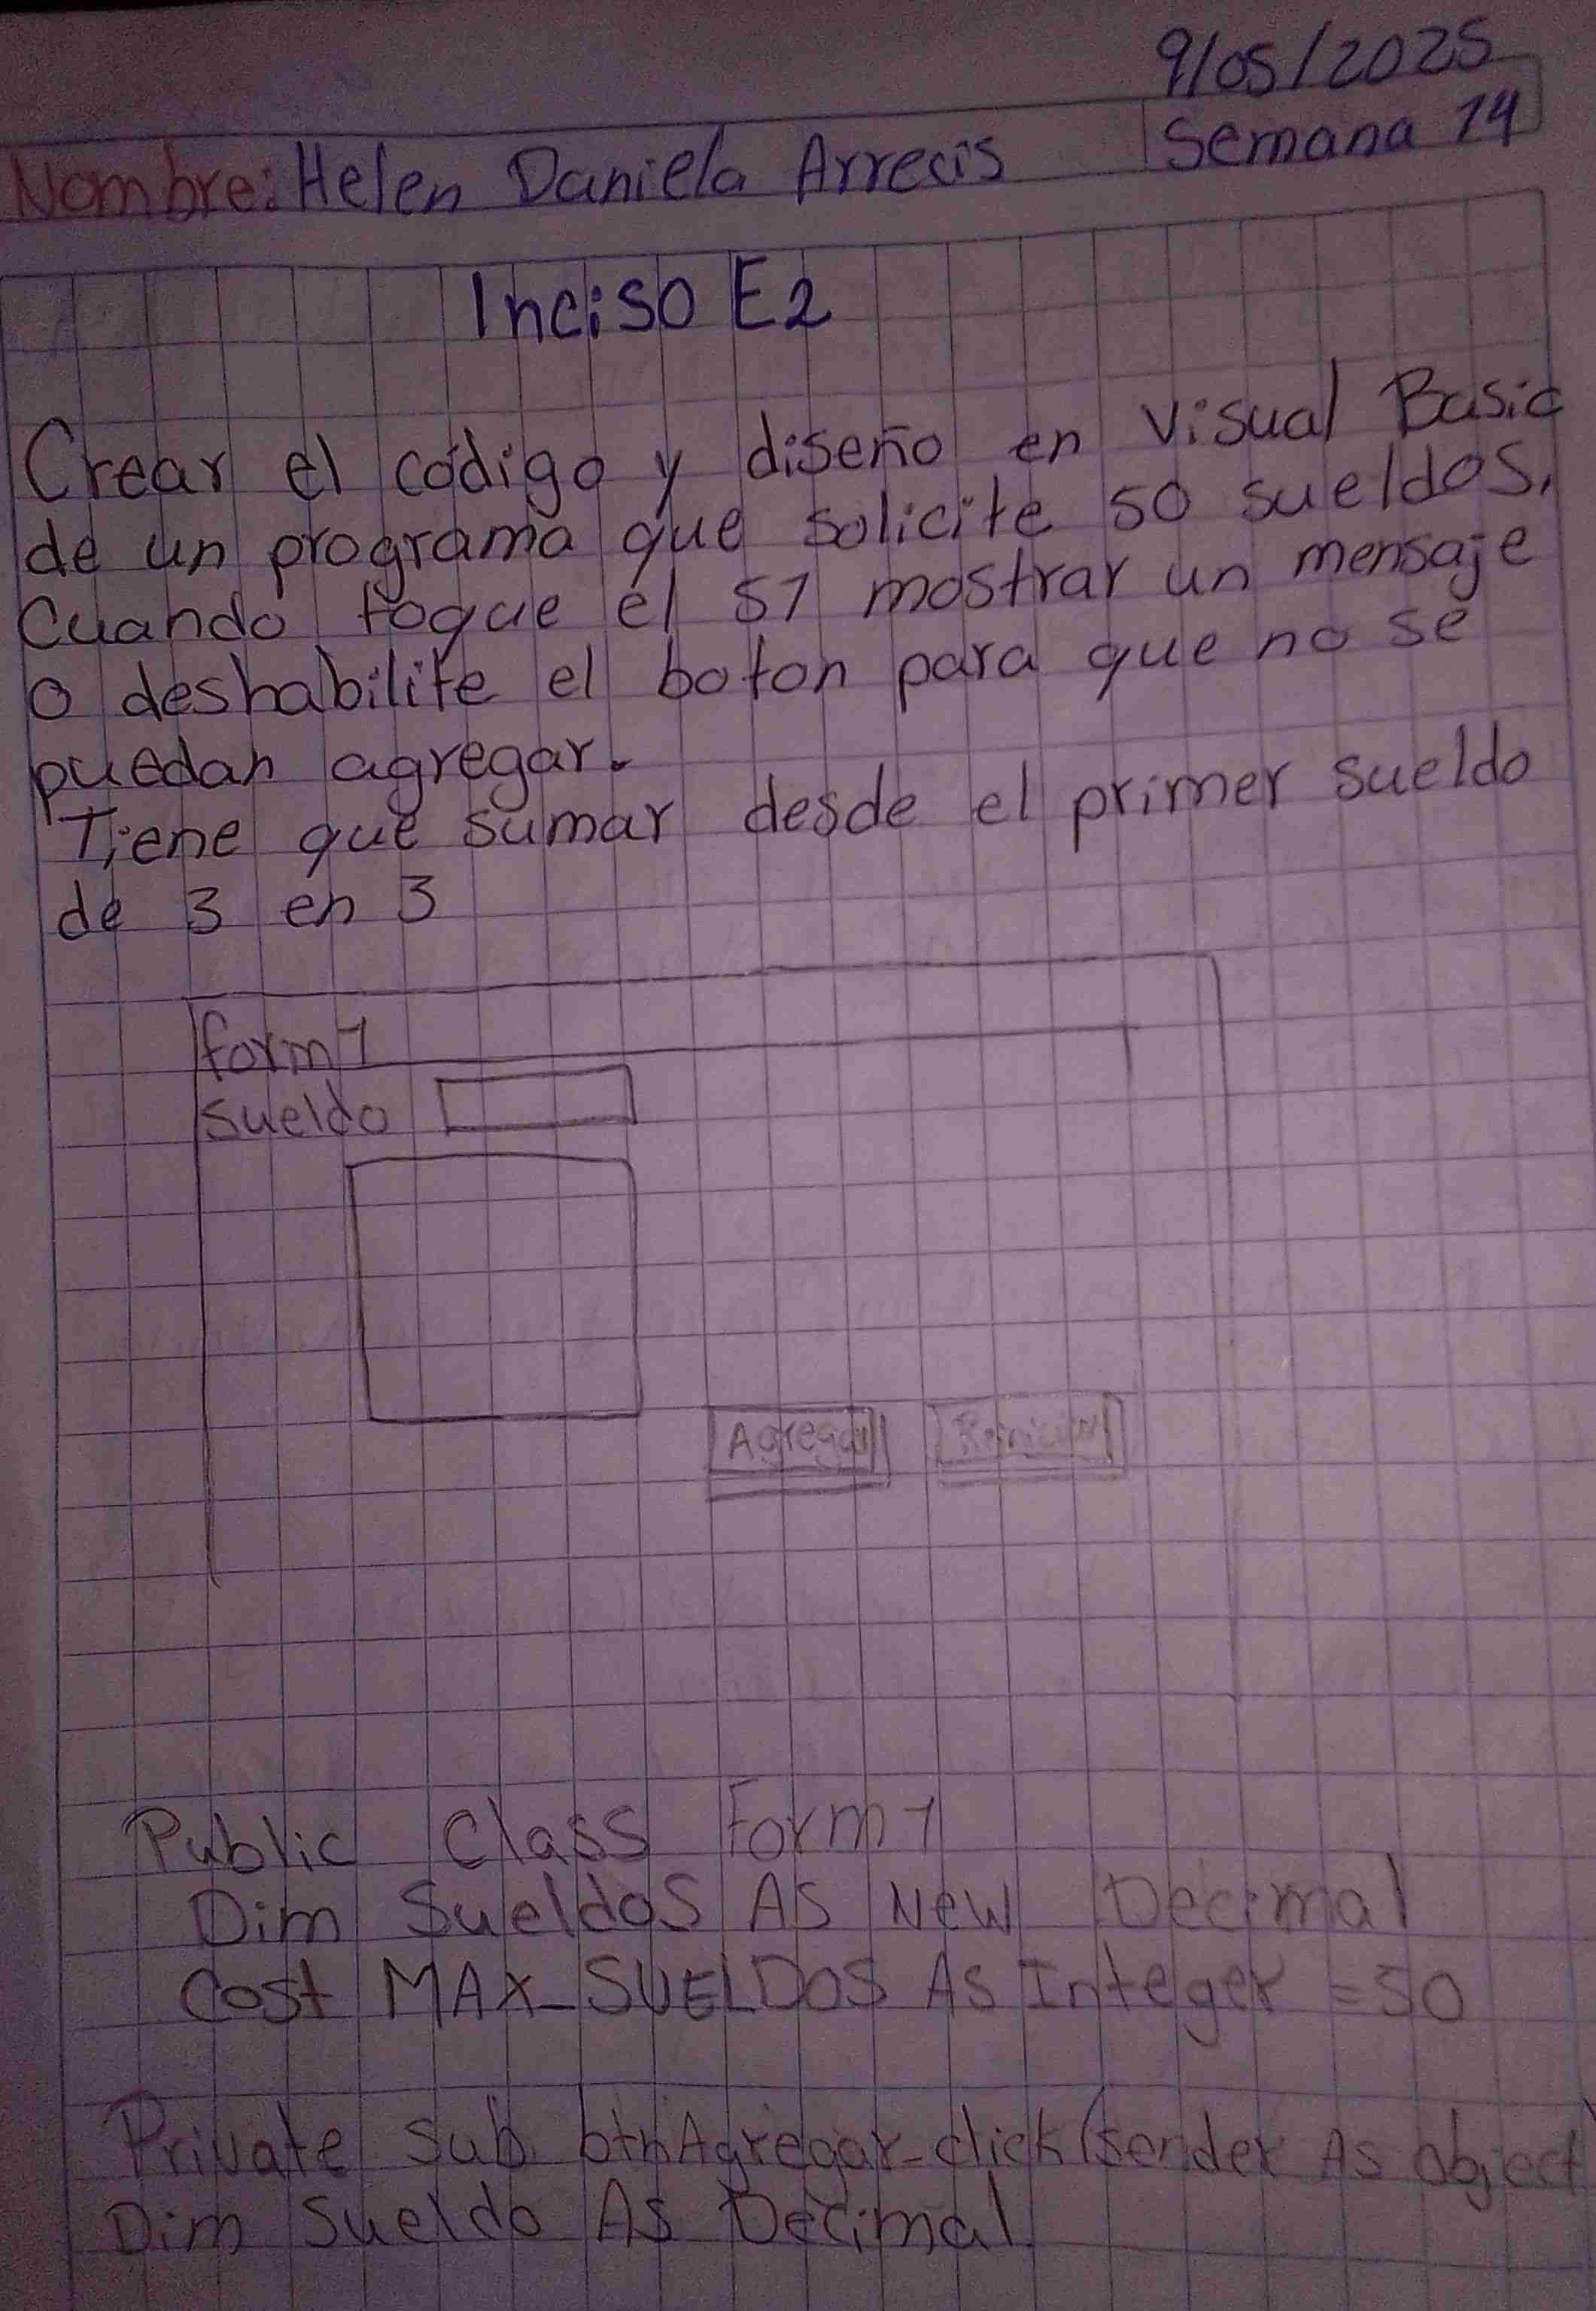 9/05/2025
Nombre: Helen Daniela Arrecis
Semana 14
Inciso E2
Crear el código y diseño en Visual Basic
de un programa que solicite 50 sueldos,
Cuando toque el 51 mostrar un mensaje
o deshabilite el boton para que no se
puedan agregar.
Tiene que sumar desde el primer sueldo
de 3 en 3
form 1
sueldo
Agregar
Reiniciar
Public Class Form 1
Dim Sueldos As New Decimal
Cost MAX_SUELDOS As Integer = 50
Private Sub btnAgregar_click (sender As object
Dim Sueldo As Decimal